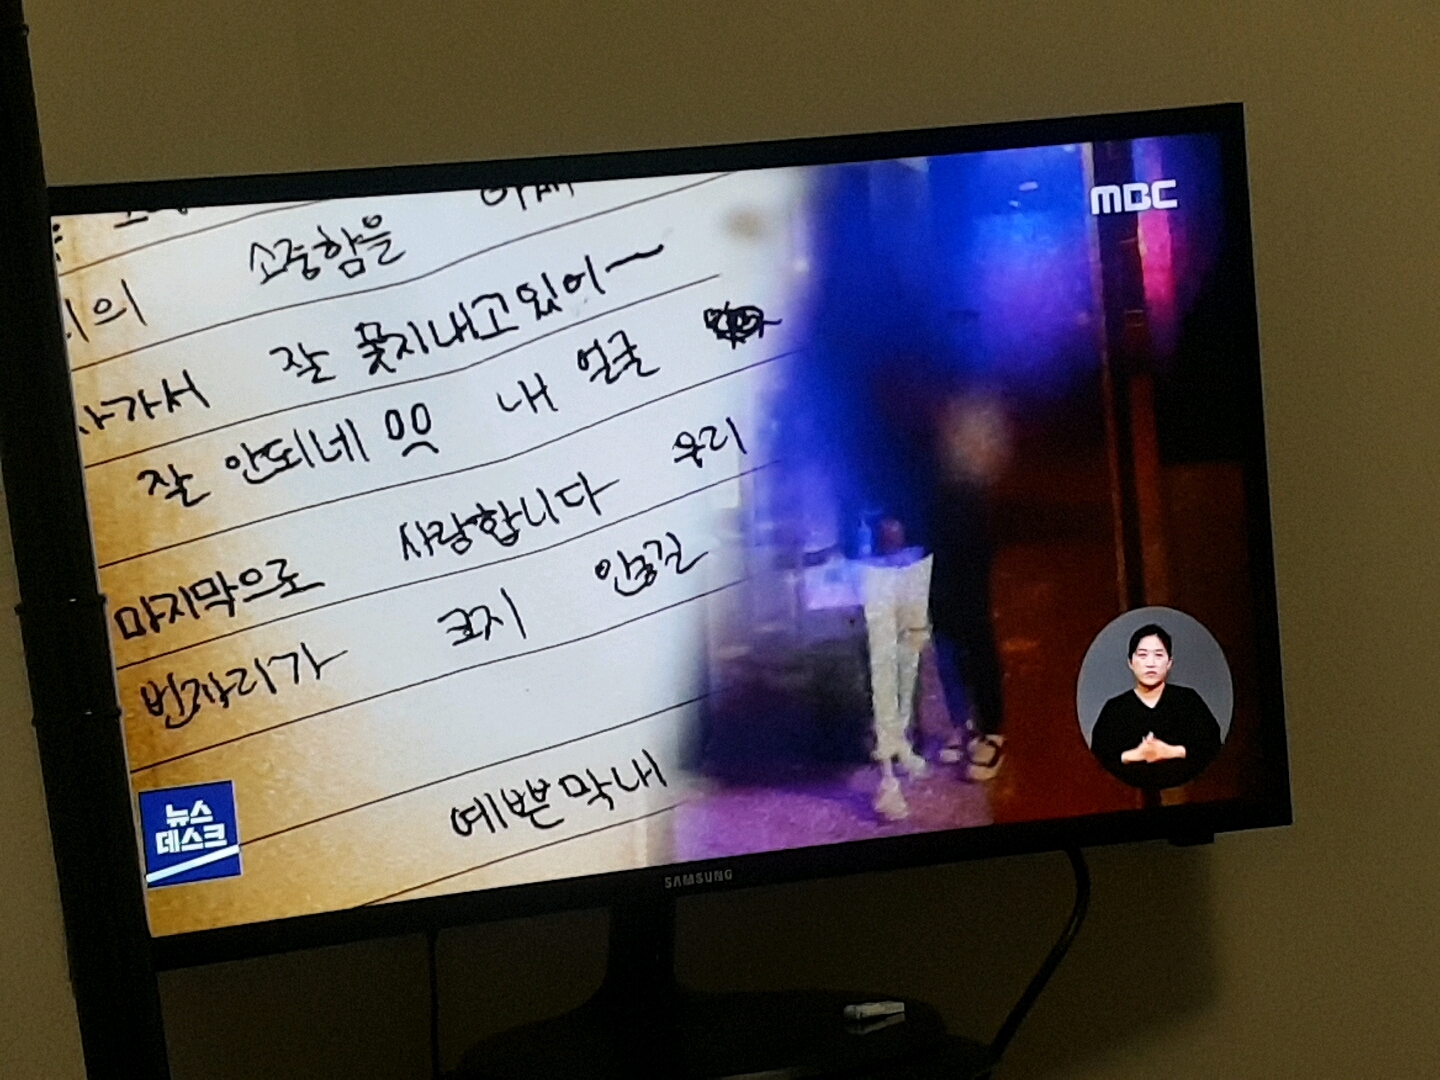 소중함을
의
가서 잘 꽃지내고있어~
잘 안되네 내 얼굴
우리
마지막으로 사랑합니다
빈자리가 크지 안흥길
예쁜막내
MBC
뉴스
데스크
SAMSUNG